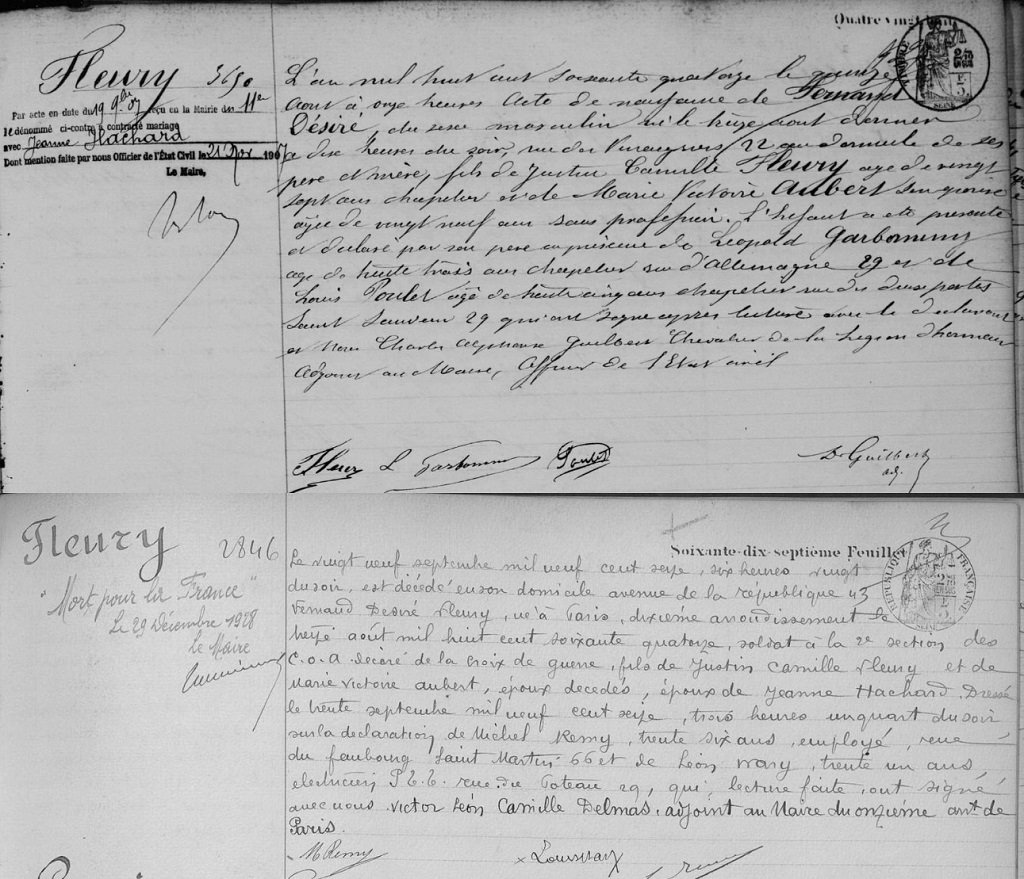 Quatre vingt
Fleury 3650
Par acte en date du 19 9bre 07 reçu en la Mairie du 11e
le dénommé ci-contre a contracté mariage
avec Jeanne Hachard
Dont mention faite par nous Officier de l'État Civil le 21 Nov 1907
Le Maire,
L'an mil huit cent soixante quatorze le quinze
aout à onze heures acte de naissance de Fernand
Désiré, du sexe masculin né le treize aout dernier
à dix heures du soir, rue des Vinaigriers 22 au domicile de ses
père et mère, fils de Justin Camille Fleury age de vingt
sept ans chapelier et de Marie Victoire Aubert son epouse
agée de vingt neuf ans sans profession. L'enfant a eté presenté
et declaré par son pere en presence de Léopold
age de trente trois ans chapelier rue d'Allemagne 29 et de
Louis Poulet agé de trente cinq ans chapelier rue des deux portes
Saint Sauveur 29 qui ont signé apres lecture avec le declarant
et Nous Charles Alphonse Guilbert Chevalier de la Legion d'honneur
Adjoint au Maire, Officier de l'Etat civil
Fleury L Poulet D Guilbert
adj.
Soixante-dix-septième Feuillet
RÉPUBLIQUE FRANÇAISE
Fleury 2846
"Mort pour la France"
Le 29 Décembre 1928
le Maire
Le vingt neuf septembre mil neuf cent seize, six heures vingt
du soir, est décédé en son domicile avenue de la république 43
Fernand Desiré Fleury, né à Paris, dixième arrondissement le
treize août mil huit cent soixante quatorze, soldat à la 2e section des
C.O.A. décoré de la croix de guerre, fils de Justin Camille Fleury et de
Marie Victoire Aubert, époux decedés, époux de Jeanne Hachard. Dressé
le trente septembre mil neuf cent seize, trois heures un quart du soir
sur la declaration de Michel Remy, trente six ans, employé, rue
du faubourg Saint Martin 66 et de Léon Wary, trente un ans,
electricien P.T.T. rue du Poteau 29, qui, lecture faite, ont signé
avec nous Victor Léon Camille Delmas, adjoint au Maire du onzième arrt de
Paris.
M Remy